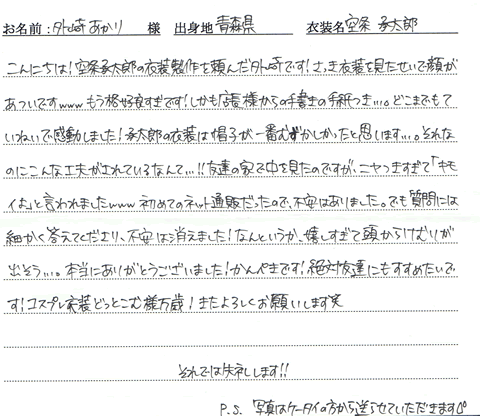 お名前：外崎あかり 様 出身地 青森県 衣装名 空条 承太郎
こんにちは！空条承太郎の衣装製作を頼んだ外崎です！さっき衣装を見たせいで顔が
あついですwww もう格好良すぎです！しかも店長様からの手書きの手紙つき…。どこまでもて
いねいで感動しました！承太郎の衣装は帽子が一番むずかしかったと思います…。それな
のにこんな工夫がされているなんて…!!友達の家で中を見たのですが、ニヤつきすぎて「キモ
イよ」と言われましたwww 初めてのネット通販だったので、不安はありました。でも質問には
細かく答えてくださり、不安は消えました！なんというか、嬉しすぎて頭からけむりが
出そう…。本当にありがとうございました！かんぺきです！絶対友達にもすすめたいで
す！コスプレ衣装どっとこむ様万歳！またよろしくお願いします笑
それでは失礼します!!
P.S. 写真はケータイの方から送らせていただきます